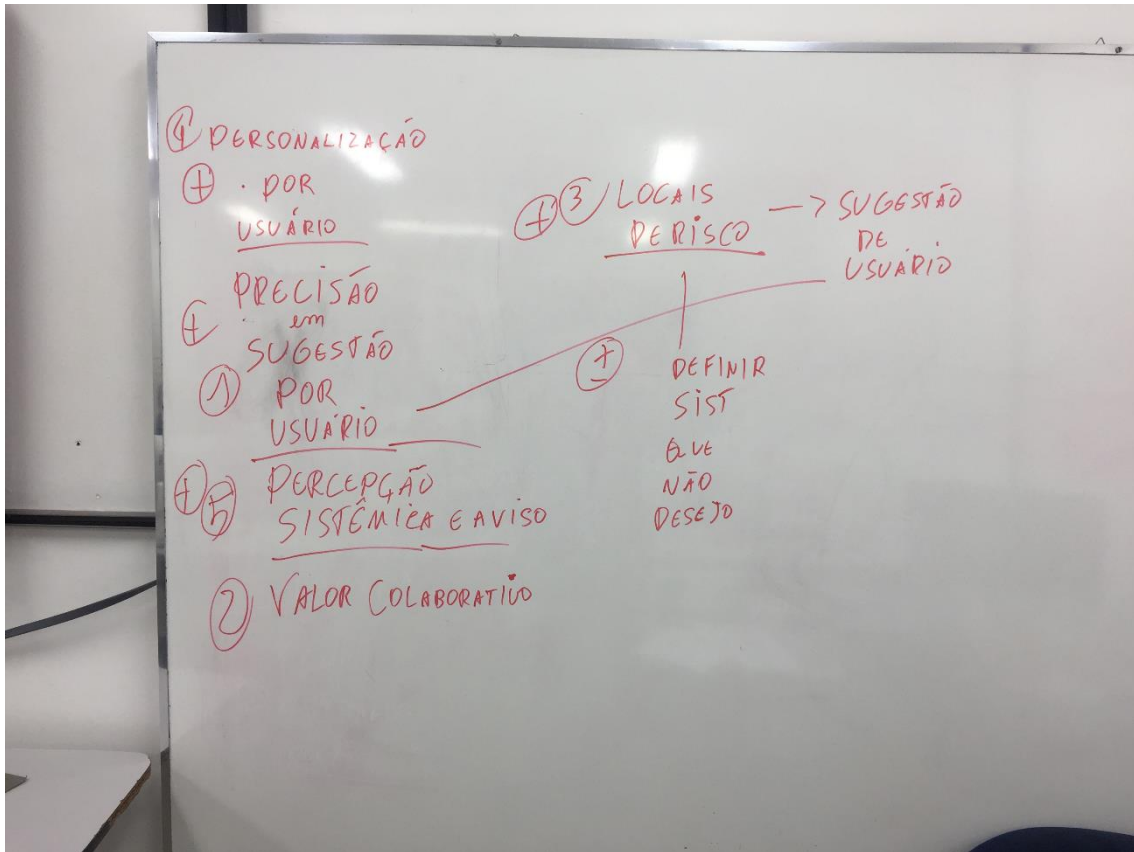 ④ PERSONALIZAÇÃO
⊕ · POR
USUÁRIO
PRECISÃO
+ em
SUGESTÃO
① POR
USUÁRIO
⊕ ⑤ PERCEPÇÃO
SISTÊMICA E AVISO
② VALOR COLABORATIVO
⊕ ③ LOCAIS
DE RISCO
—> SUGESTÃO
DE
USUÁRIO
DEFINIR
SIST
QUE
NÃO
DESEJO